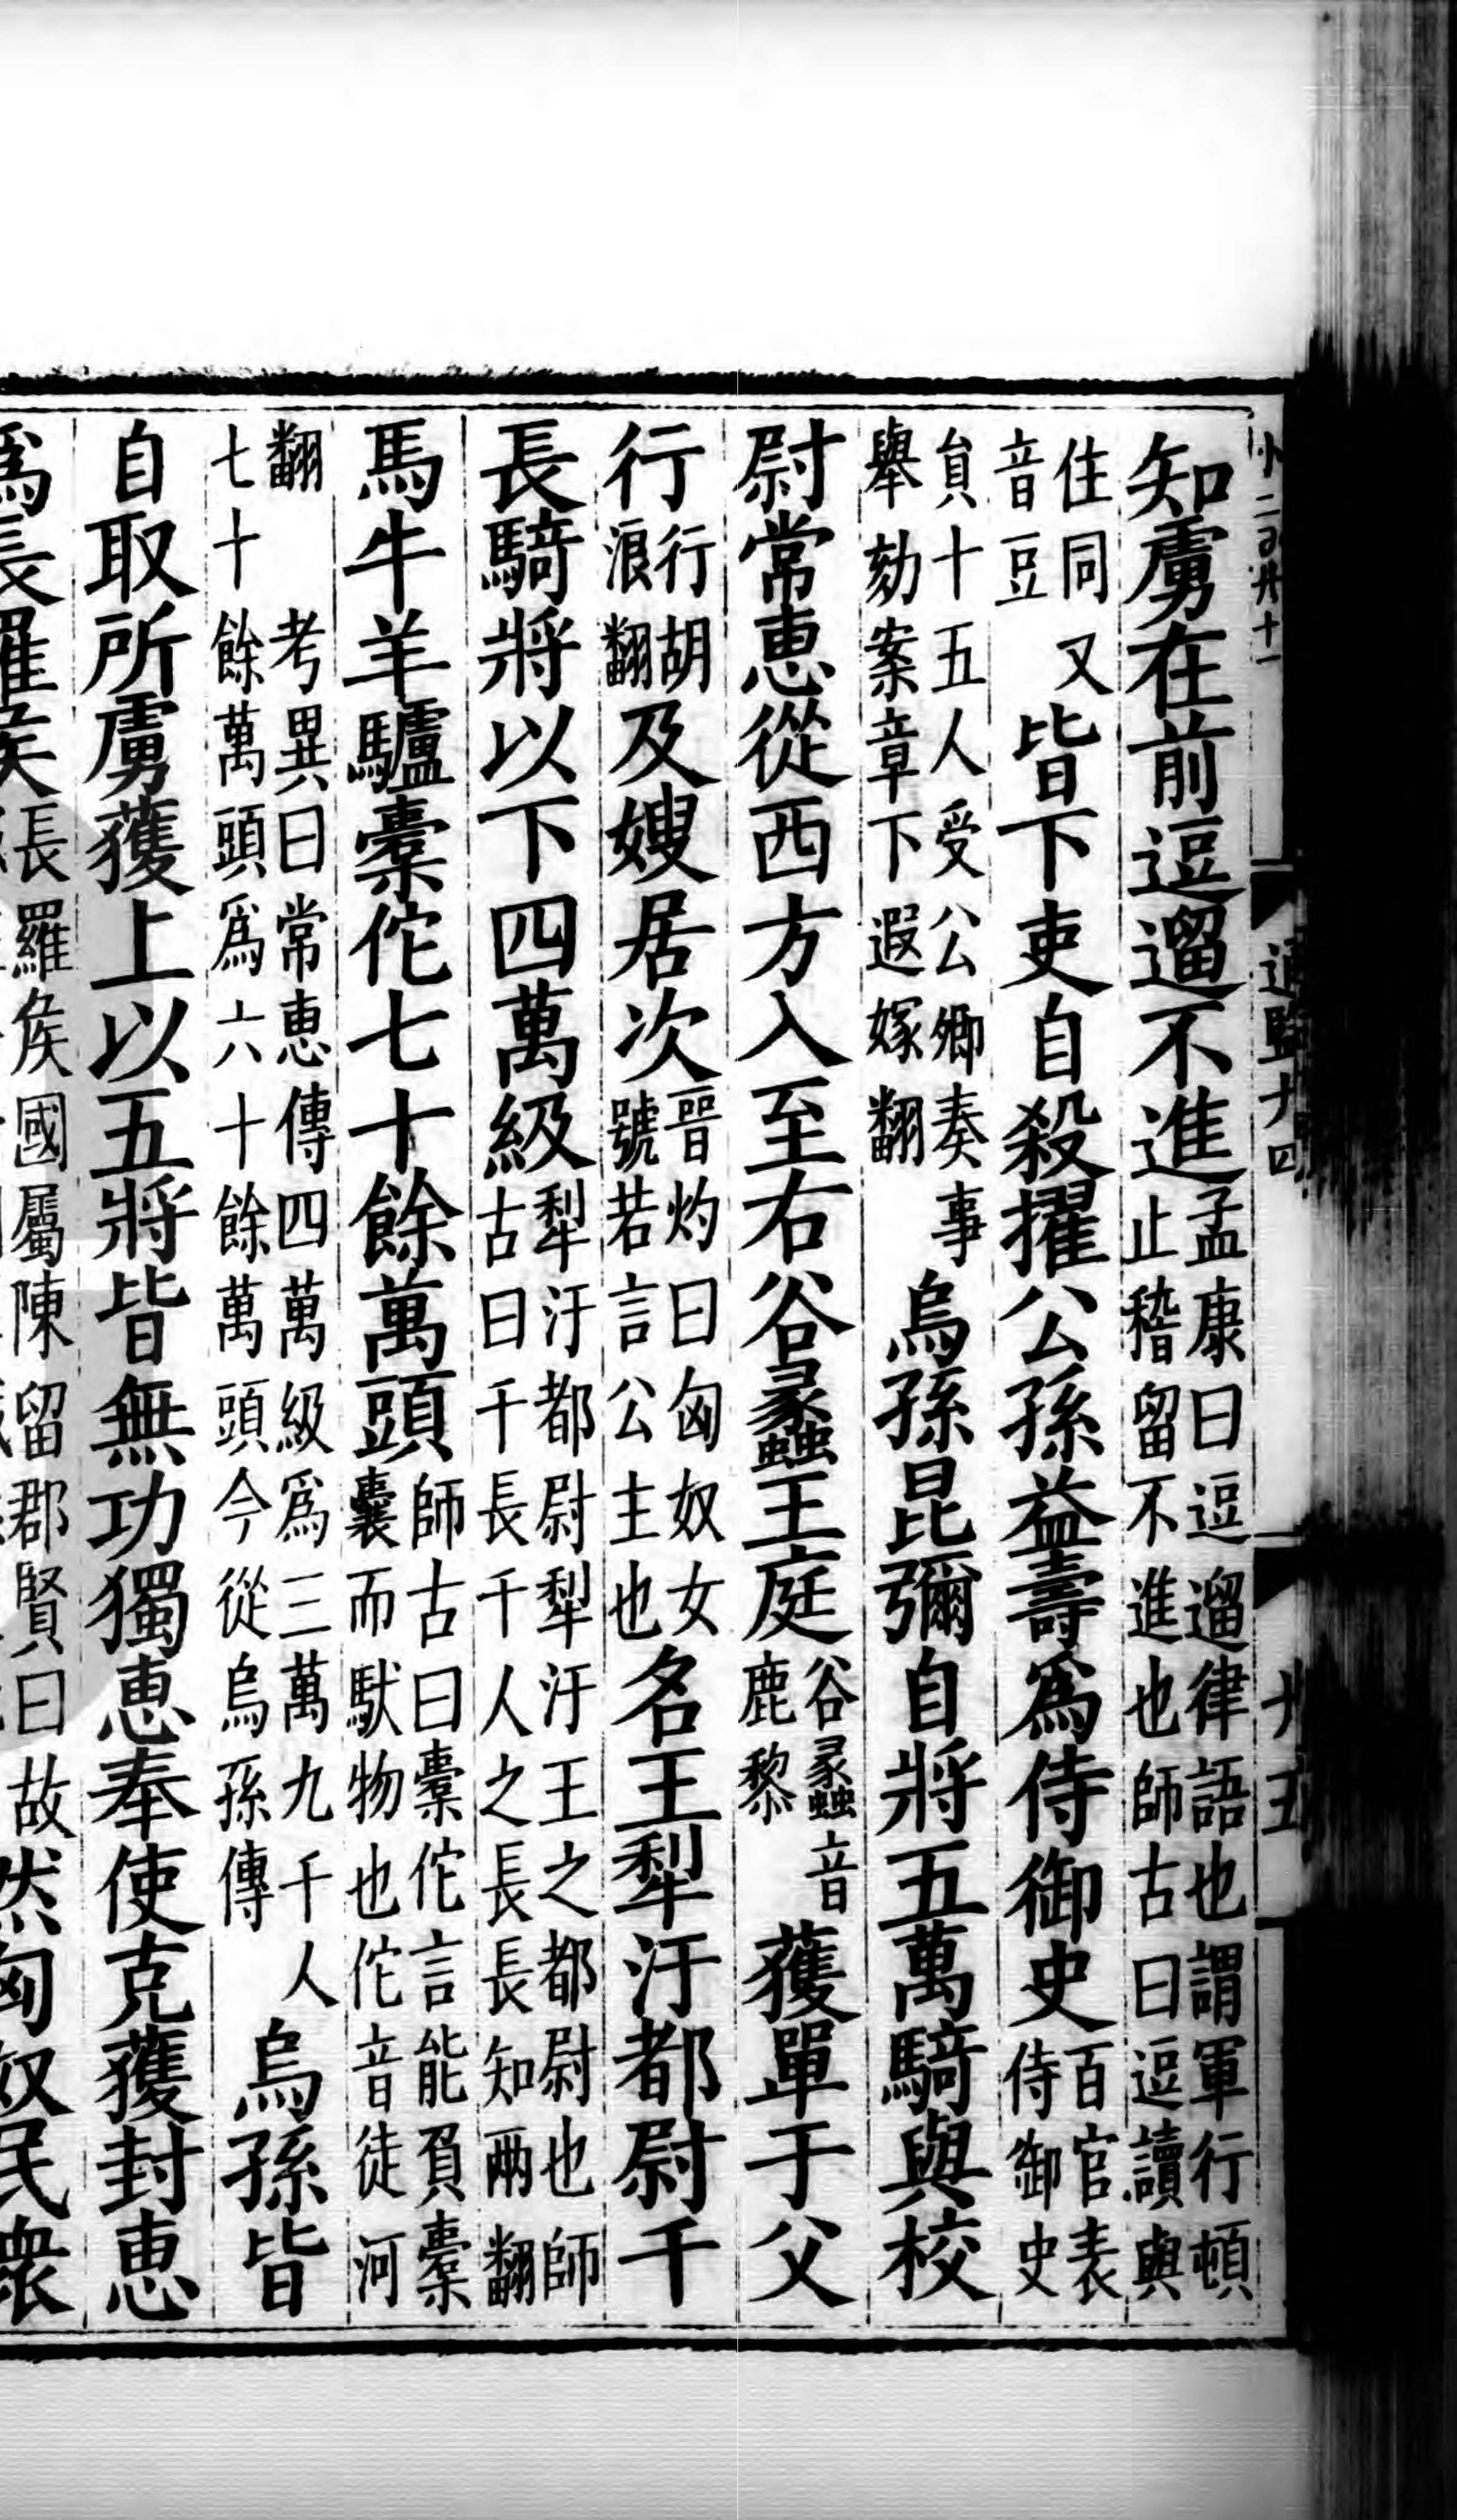 知虜在前逗遛不進孟康曰逗遛律語也謂軍行頓止稽留不進也師古曰逗讀與
住同又音豆皆下吏自殺擢公孫益壽爲侍御史百官表侍御史
員十五人受公卿奏事舉劾案章下遐嫁翻烏孫昆彌自將五萬騎與校
尉常惠從西方入至右谷蠡王庭谷蠡音鹿黎獲單于父
行行胡浪翻及嫂居次晉灼曰匈奴女號若言公主也名王犁汙都尉千
長騎將以下四萬級犁汙都尉犁汙王之都尉也師古曰千長千人之長長知兩翻
馬牛羊驢橐佗七十餘萬頭師古曰橐佗言能負橐囊而馱物也佗音徒河
翻考異曰常惠傳四萬級爲三萬九千人七十餘萬頭爲六十餘萬頭今從烏孫傳烏孫皆
自取所虜獲上以五將皆無功獨惠奉使克獲封惠
爲長羅侯長羅侯國屬陳留郡賢曰故然匈奴民衆
通鑑廿四